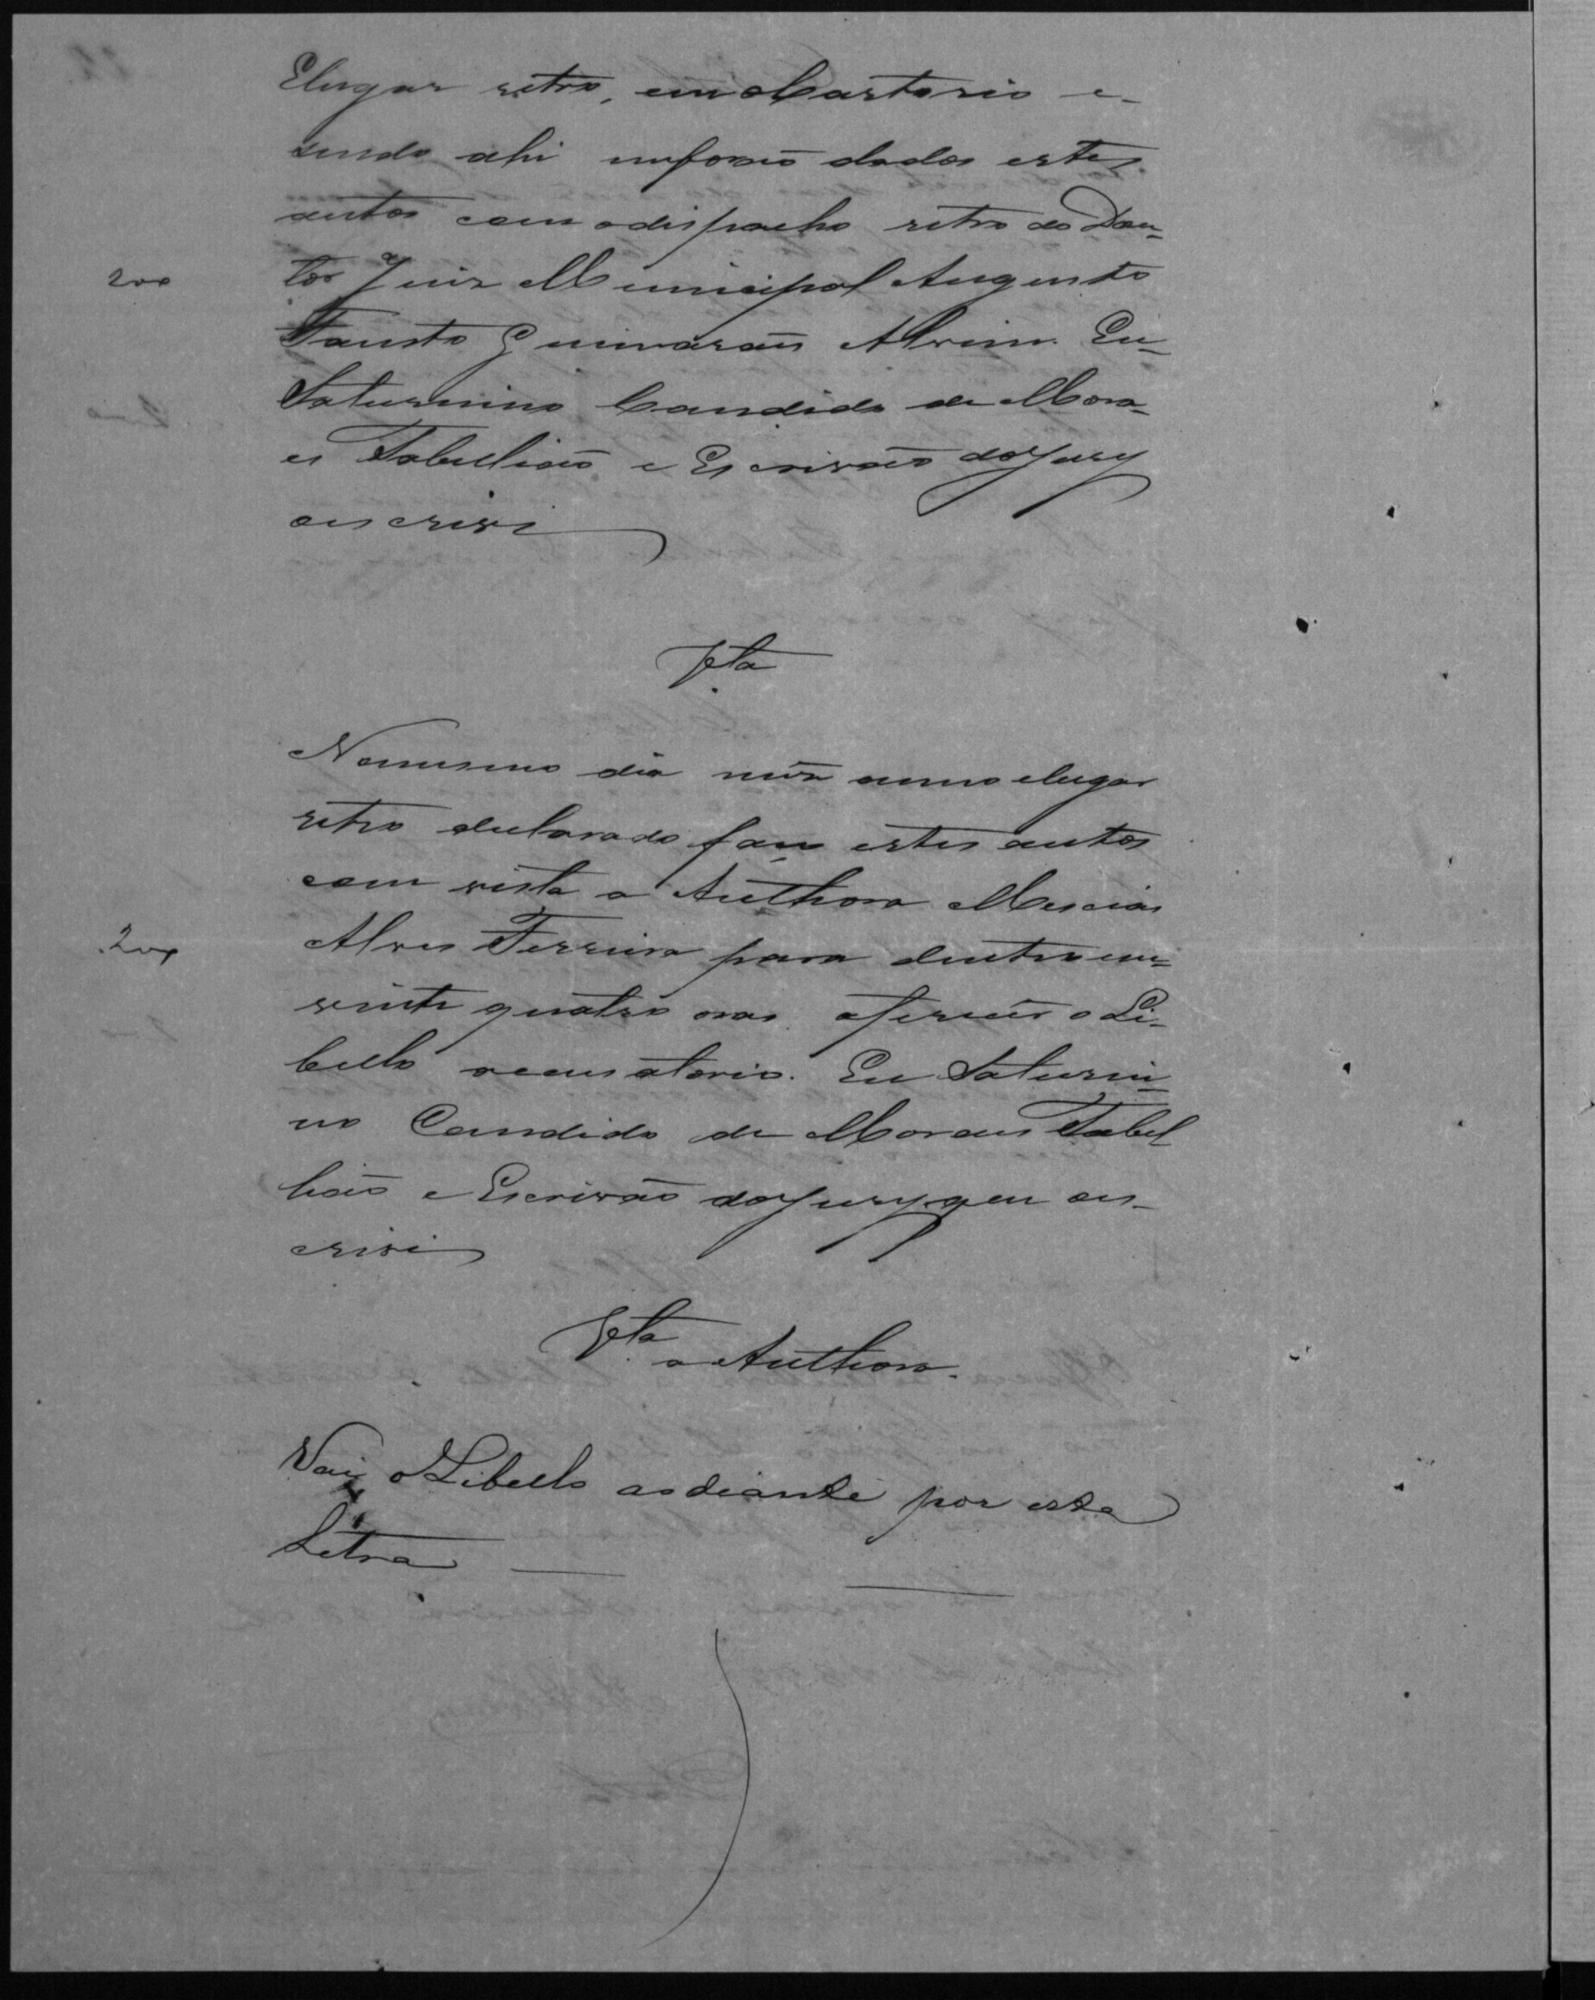 Elugar retro, em Cartorio e
sendo ahi me forão dados estes
autos com o dispacho retro do Dou-
tor Juis Municipal Augusto
200
Fausto Guimarães Alvim. Eu
Saturnino Candido de Mora-
es Tabellião e Escrivão do Jury
o escrivi
Vta
No mesmo dia mês anno e lugar
retro declarado faço estes autos
com vista a Authora Messias
Alves Ferreira para dentro em
200
vinte quatro oras oferecer o Li-
bello acusatorio. Eu Saturni-
no Candido de Moraes Tabel
lião e Escrivão do Jury que o es-
crivi
Vta a Authora.
Vai o Libello aodiante por esta
Letra